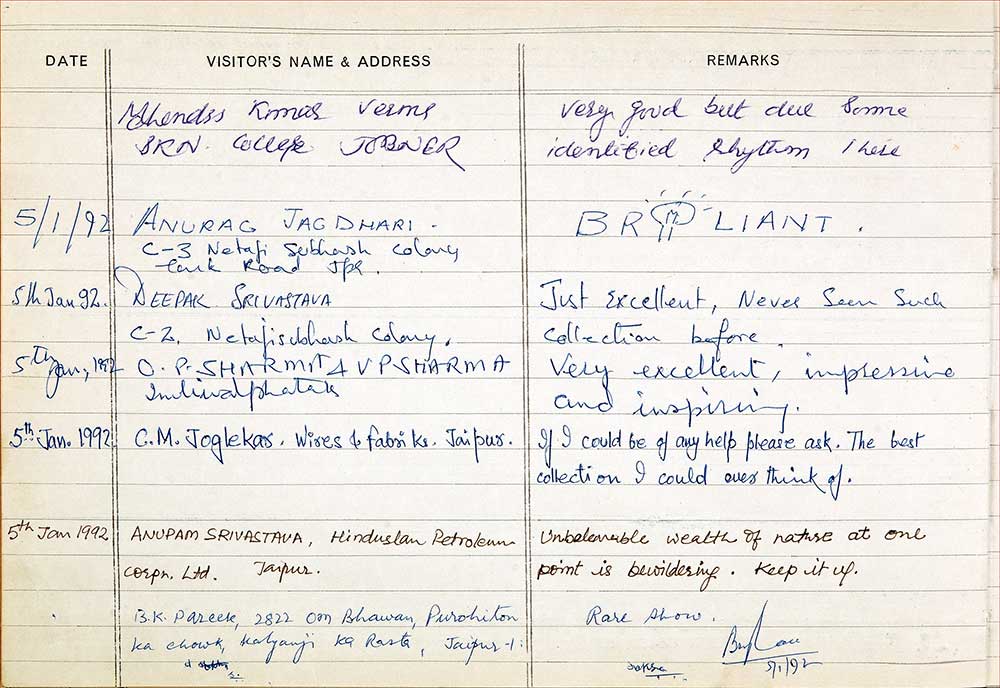 DATE VISITOR'S NAME & ADDRESS REMARKS
Mahendra Kumar Verma very good but due some
SKN. College JOBNER identified rhythm these
5/1/92 ANURAG JAGDHARI. BRILLIANT.
C-3 Netaji Subhash Colony
Tonk Road Jpr.
5th Jan 92. DEEPAK SRIVASTAVA Just Excellent, Never Seen Such
C-2, Netajisubhash Colony. collection before.
5th Jan, 1992 O.P. SHARMA & V P SHARMA Very excellent, impressive
Imliwalphatak and inspiring.
5th Jan. 1992 C.M. Joglekar. Wires & fabriks. Jaipur. If I could be of any help please ask. The best
collection I could ever think of.
5th Jan 1992 ANUPAM SRIVASTAVA, Hindustan Petroleum Unbelievable wealth of nature at one
Corpn. Ltd. Jaipur. point is bewildering. Keep it up.
B.K. Pareek, 2822 Om Bhawan, Purohiton Rare show.
ka chowk, Kalyanji ka Rasta, Jaipur-1.
5/1/92